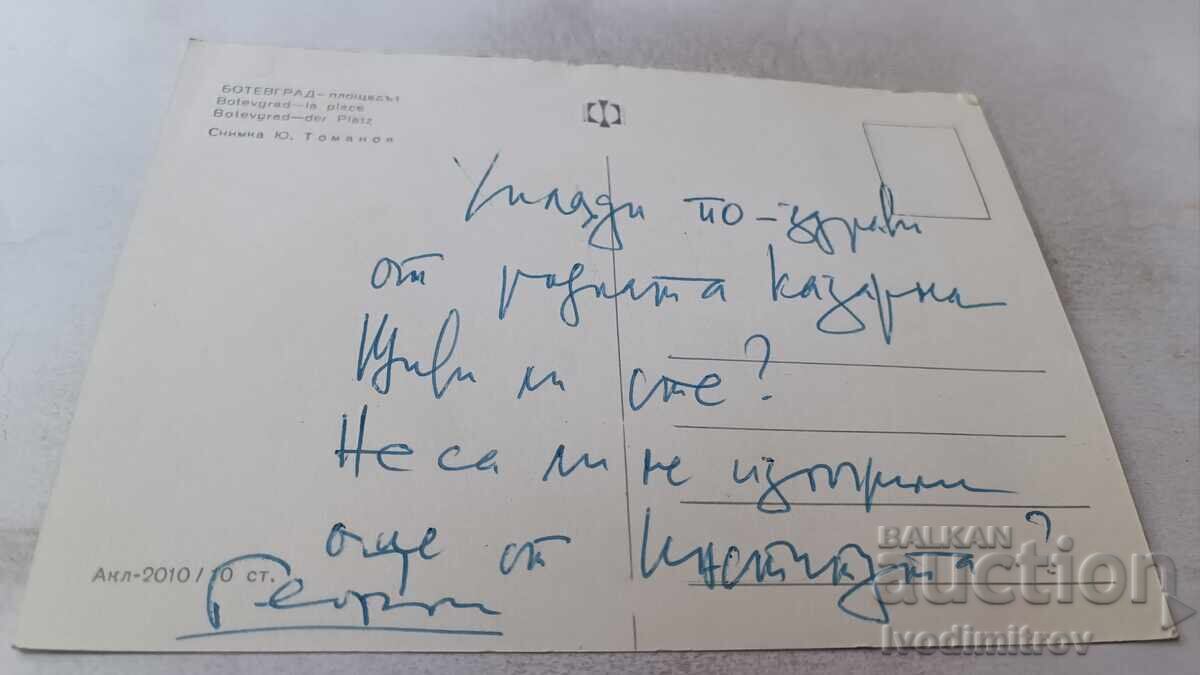 БОТЕВГРАД — площадът
Botevgrad—la place
Botevgrad—der Platz
Снимка Ю. Томанов
по-здрави
от родната казарма
Живи ли сте?
Не са ли не изгорили
още от Института?
Георги
Акл-2010/10 ст.
BALKAN
auction
Ivodimitrov